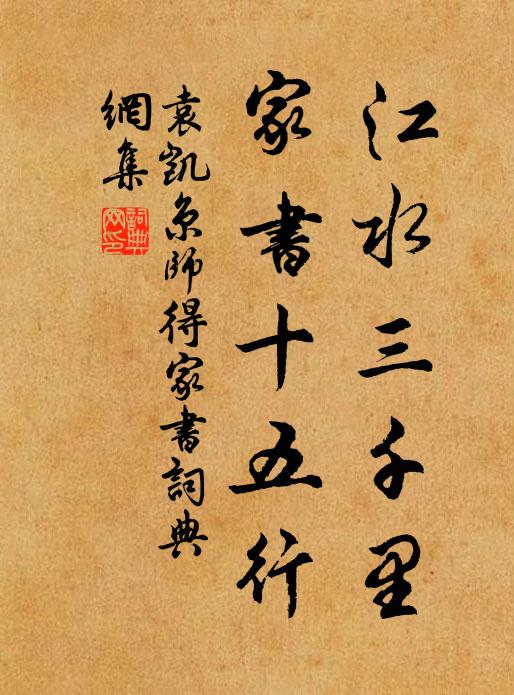 江水三千里
家書十五行
袁凱京師得家書詞典
網集
詞典網印